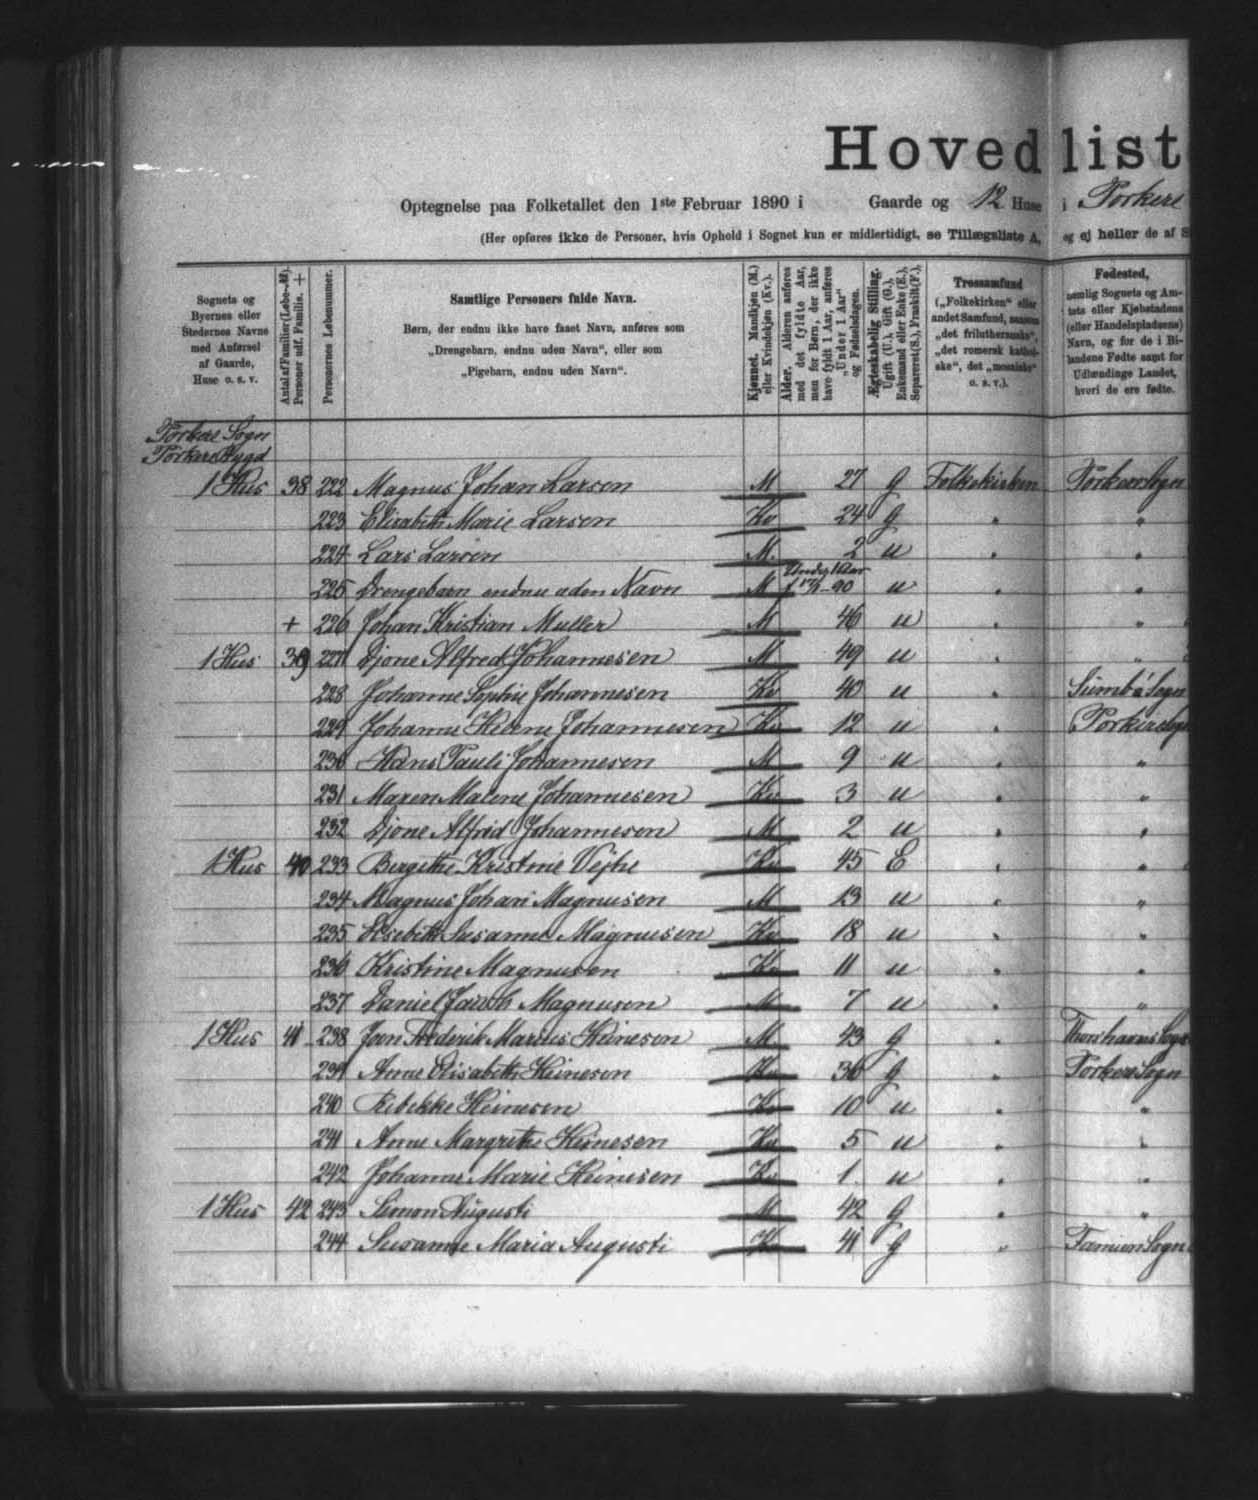 Hovedlist
Optegnelse paa Folketallet den 1ste Februar 1890 i Gaarde og 12 Huse i Porkere
(Her opføres ikke de Personer, hvis Ophold i Sognet kun er midlertidigt, se Tillægsliste A, og ej heller de af S
Sognets og Byernes eller Stedernes Navne med Anførsel af Gaarde, Huse o. s. v.
Antal af Familier (Løbe-№). Personer udf. Familie. +
Personernes Løbenummer.
Samtlige Personers fulde Navn.
Børn, der endnu ikke have faaet Navn, anføres som
„Drengebarn, endnu uden Navn", eller som
„Pigebarn, endnu uden Navn".
Kjønnet. Mandkjøn (M.) eller Kvindekjøn (Kv.).
Alder. Alderen anføres med det fyldte Aar, men for Børn, der ikke have fyldt 1 Aar, anføres „Under 1 Aar" og Fødselsdagen.
Ægteskabelig Stilling. Ugift (U.), Gift (G.), Enkemand eller Enke (E.), Separeret (S.), Fraskilt (F.).
Trossamfund („Folkekirken" eller andet Samfund, saasom „det frilutherske", „det romersk katholske", det „mosaiske" o. s. v.).
Fødested, nemlig Sognets og Amtets eller Kjøbstadens (eller Handelspladsens) Navn, og for de i Bilandene Fødte samt for Udlændinge Landet, hvori de ere fødte.
Porkere Sogn
Porkere Bygd
1 Hus 38 222 Magnus Johan Larsen M 27 G Folkekirken Porkere Sogn
223 Elisabeth Marie Larsen Kv 24 G " "
224 Lars Larsen M. 2 u " "
225 Drengebarn endnu uden Navn M Under 1 Aar f 17/1-90 u " "
+ 226 Johan Kristian Muller M 46 u " "
1 Hus 39 227 Djone Alfred Johannesen M 49 u " "
228 Johanne Sophie Johannesen Kv 40 u " Sumbø Sogn
229 Johanne Helene Johannesen Kv 12 u " Porkere Sogn
230 Hans Pauli Johannesen M 9 u " "
231 Maren Malene Johannesen Kv 3 u " "
232 Djone Alfred Johannesen M 2 u " "
1 Hus 40 233 Bergithe Kristine Vejhe Kv 45 E " "
234 Magnus Johan Magnusen M 13 u " "
235 Elsebeth Susanne Magnusen Kv 18 u " "
236 Kristine Magnusen Kv 11 u " "
237 Daniel Jacob Magnusen M 7 u " "
1 Hus 41 238 Joen Frederik Marcus Heinesen M 43 G " Thorshavns Sogn
239 Anne Elisabeth Heinesen Kv 36 G " Porkere Sogn
240 Ribekke Heinesen Kv 10 u " "
241 Anne Margrethe Heinesen Kv 5 u " "
242 Johanne Marie Heinesen Kv 1 u " "
1 Hus 42 243 Simon Augusti M 42 G " "
244 Susanne Maria Augusti Kv 41 G " Famien Sogn